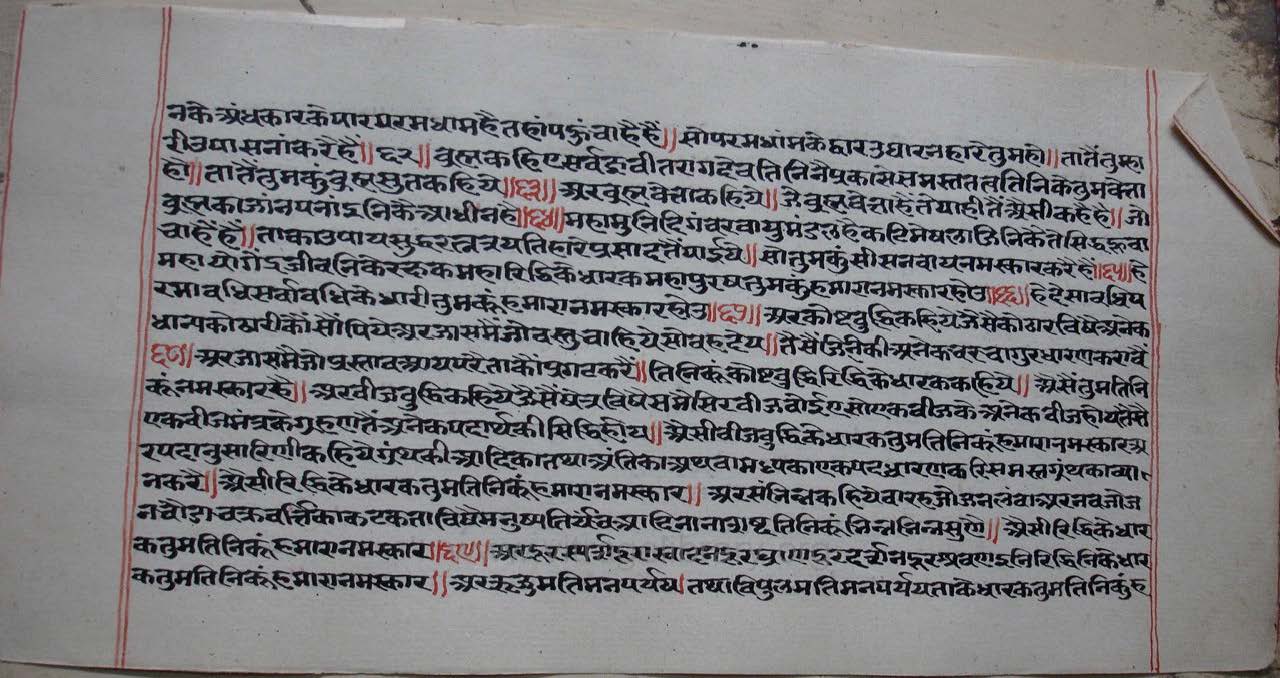 नकै अंधकारके पार परमधाम है तहां पहुंचा है हैं॥ सो परमधांमकै द्वार उघारनहारे तुम हो॥ तातैं तुम्हा
री उपासनां करै हैं॥६२॥ बुद्ध कहिए सर्वज्ञ वीतराग देव तिनिनै प्रकासे समस्त तत्व तिनिके तुम वेत्ता
हो॥ तातैं तुमकु बुद्ध सुत कहिये॥६३॥ अर बुद्ध वेत्ता कहिये॥ जे बुद्ध वेत्ता है ते याही तैं अैसी कहै है॥ जो
बुद्धका जानपनां इनिकै आधीन है॥६४॥ महामुनि दिगंबर वायुमंडल है कटिमेषला जिनिकै ते सिद्ध हूवा
चाहै हैं॥ ताका उपाय सुद्ध रत्नत्रय तिहारे प्रसाद तैं पाईये॥ सो तुमकुं सीस नवाय नमस्कार करै हैं॥६५॥ हे
महा योगेंद्र जीवनिके रक्षक महारिद्धिके धारक महापुरष तुमकुं हमारा नमस्कार होउ॥६६॥ हे देसावधि प
रमावधि सर्वावधिके धारी तुमकूं हमारा नमस्कार होउ॥६७॥ अर कोष्टबुद्धि कहिये जैसै कोठार विषै अनेक
धान्य कोठारीकौं सौंपिये अर जा समै जो वस्तु चाहिये सो वह देय॥ तैसैं जिनिकी अनेक चरचा गुर धारण करावैं
६८॥ अर जा समै जो प्रस्ताव आय परै ताकौं प्रगट करैं॥ तिनिकूं कोष्टबुद्धि रिद्धिके धारक कहिये॥ अैसे तुम तिनि
कूं नमस्कार है॥ अर बीजबुद्धि कहिये जैसैं षेत्र विषै समै सिर बीज बोईए सो एक बीजके अनेक बीज होय तैसे
एक बीजमंत्रके ग्रहण तैं अनेक पदार्थकी सिद्धि होय॥ अैसी बीजबुद्धिके धारक तुम तिनिकूं हमारा नमस्कार अ
र पदानुसारिणी कहिये ग्रंथकी आदिका तथा अंतिका अथवा मध्यका एक पद धारण करि समस्त ग्रंथका व्या
न करै॥ अैसी रिद्धिके धारक तुम तिनिकूं हमारा नमस्कार॥ अर संभिन्न कहिये बारह जोजन लंबा अर नव जोज
न चौडा चक्रवर्त्तिका कटक ता विषै मनुष्य तिर्यंच आदि नाना शब्द तिनिकूं भिन्न भिन्न सुणें॥ अैसी रिद्धिके धार
क तुम तिनिकूं हमारा नमस्कार॥६९॥ अर दूर स्पर्श दूरास्वादन दूर घ्राण दूर दर्शन दूर श्रवण इनि रिद्धिनिके धार
क तुम तिनिकूं हमारा नमस्कार॥ अर ऋजुमति मनपर्यय। तथा विपुलमति मनपर्यय ताके धारक तुम तिनिकुं ह